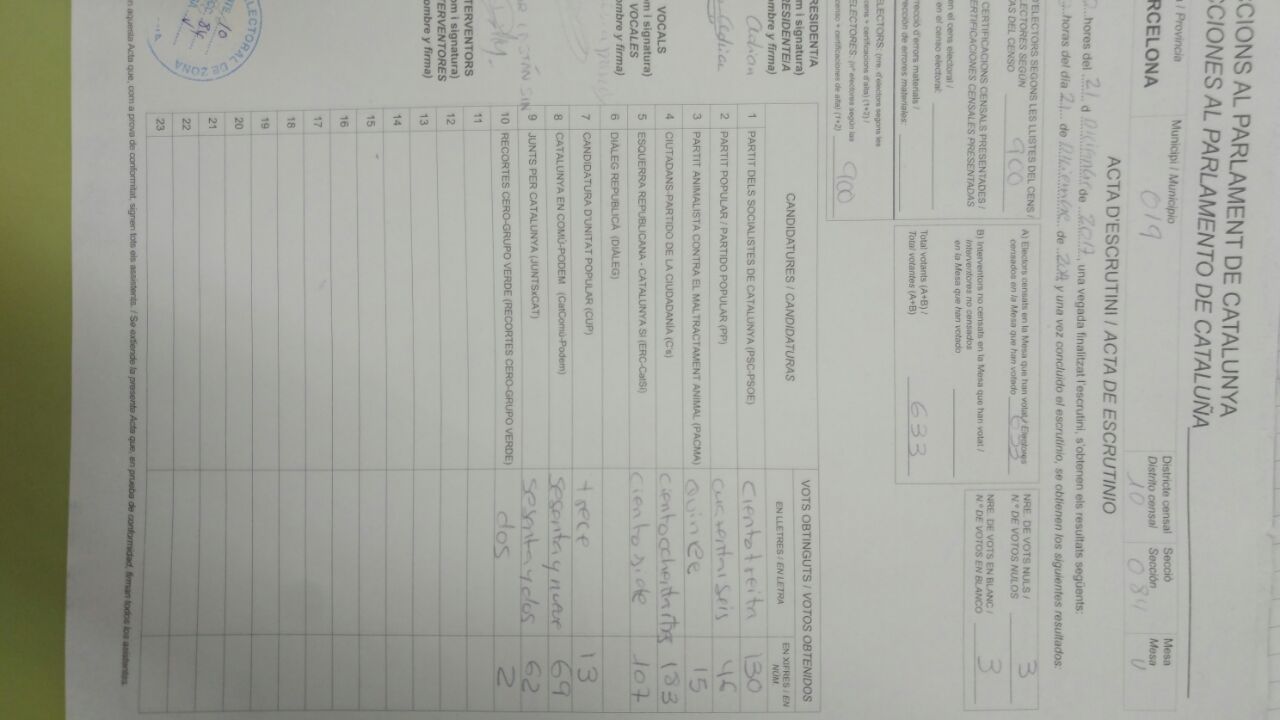 CIONS AL PARLAMENT DE CATALUNYA
CIONES AL PARLAMENTO DE CATALUÑA
/ Provincia
RCELONA
Municipi / Municipio
019
Districte censal
Distrito censal
10
Secció
Sección
084
Mesa
Mesa
U
ACTA D'ESCRUTINI / ACTA DE ESCRUTINIO
hores del 21 d diciembre de 2017, una vegada finalitzat l'escrutini, s'obtenen els resultats següents:
horas del día 21 de diciembre de 2017 y una vez concluido el escrutinio, se obtienen los siguientes resultados:
D'ELECTORS SEGONS LES LLISTES DEL CENS /
ELECTORES SEGÚN
AS DEL CENSO
900
CERTIFICACIONS CENSALS PRESENTADES /
CERTIFICACIONES CENSALES PRESENTADAS
en el cens electoral /
en el censo electoral:
rrecció d'errors materials /
rrección de errores materiales:
ELECTORS: (nre. d'electors segons les
cens + certificacions d'alta) (1+2) /
ELECTORES: (nº electores según las
censo + certificaciones de alta) (1+2)
900
A) Electors censats en la Mesa que han votat / Electores
censados en la Mesa que han votado
633
B) Interventors no censats en la Mesa que han votat /
Interventores no censados
en la Mesa que han votado
Total votants (A+B) /
Total votantes (A+B)
633
NRE. DE VOTS NULS /
Nº DE VOTOS NULOS
3
NRE. DE VOTS EN BLANC /
Nº DE VOTOS EN BLANCO
3
RESIDENT/A
m i signatura)
RESIDENTE/A
mbre y firma)
VOCALS
m i signatura)
VOCALES
ombre y firma)
TERVENTORS
om i signatura)
TERVENTORES
ombre y firma)
CANDIDATURES / CANDIDATURAS
VOTS OBTINGUTS / VOTOS OBTENIDOS
EN LLETRES / EN LETRA
EN XIFRES / EN NÚM
1 PARTIT DELS SOCIALISTES DE CATALUNYA (PSC-PSOE) ciento treinta 130
2 PARTIT POPULAR / PARTIDO POPULAR (PP) cuarentaiseis 46
3 PARTIT ANIMALISTA CONTRA EL MALTRACTAMENT ANIMAL (PACMA) Quince 15
4 CIUTADANS-PARTIDO DE LA CIUDADANÍA (C's) ciento ochentaitres 183
5 ESQUERRA REPUBLICANA - CATALUNYA SÍ (ERC-CatSí) ciento siete 107
6 DIÀLEG REPUBLICÀ (DIÀLEG)
7 CANDIDATURA D'UNITAT POPULAR (CUP) trece 13
8 CATALUNYA EN COMÚ-PODEM (CatComú-Podem) sesenta y nueve 69
9 JUNTS PER CATALUNYA (JUNTSxCAT) sesenta y dos 62
10 RECORTES CERO-GRUPO VERDE (RECORTES CERO-GRUPO VERDE) dos 2
11
12
13
14
15
16
17
18
19
20
21
22
23
ELECTORAL DE ZONA
n aquesta Acta que, com a prova de conformitat, signen tots els assistents. / Se extiende la presente Acta que, en prueba de conformidad, firman todos los asistentes.